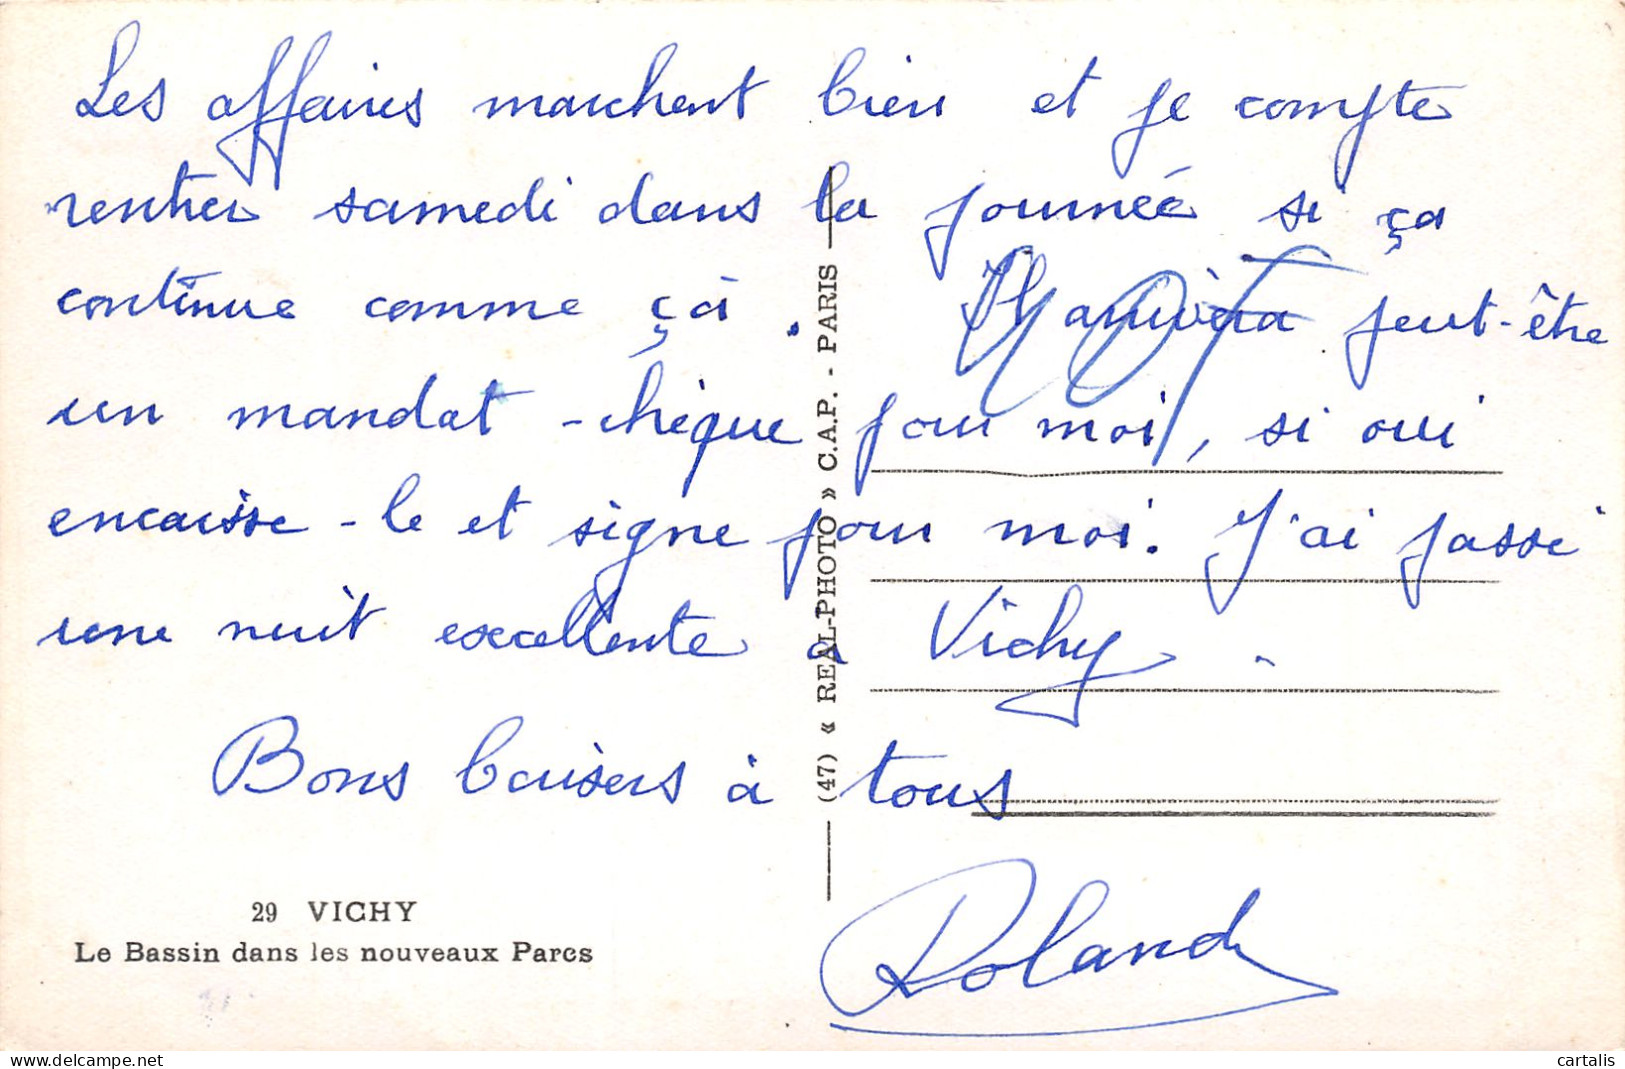 Les affaires marchent bien et je compte
rentrer samedi dans la journée si ça
continue comme çà. Il arrivera peut-être
un mandat-chèque pour moi, si oui
encaisse-le et signe pour moi. J'ai passé
une nuit excellente à Vichy.
Bons baisers à tous
Roland
(47) « REAL-PHOTO » C.A.P. - PARIS
29 VICHY
Le Bassin dans les nouveaux Parcs
delcampe.net
cartalis